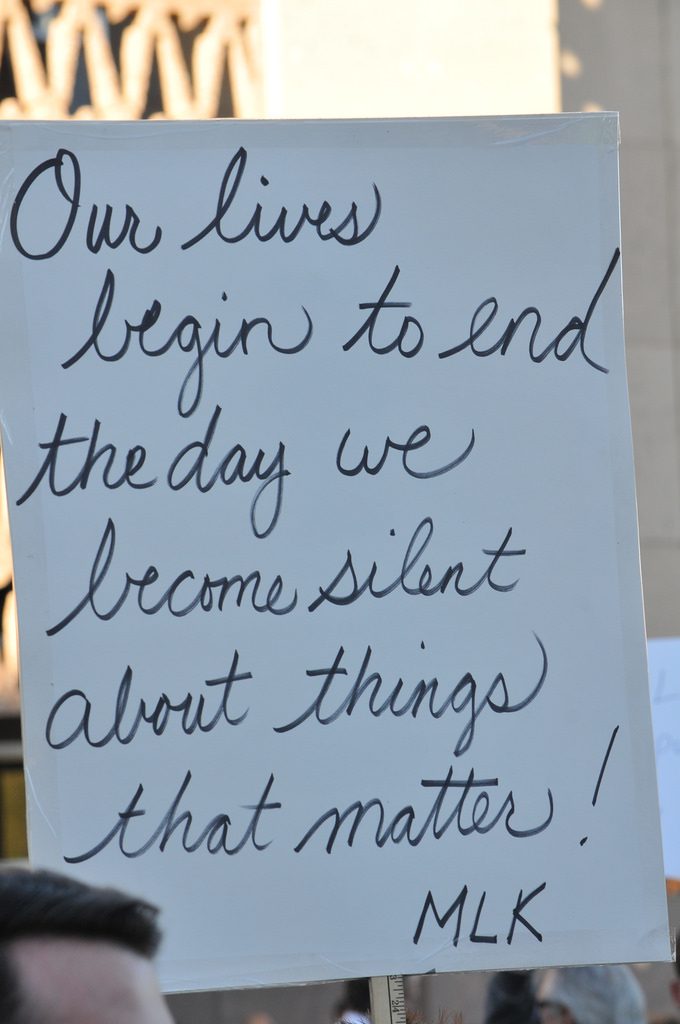 Our lives
begin to end
the day we
become silent
about things
that matter!
MLK